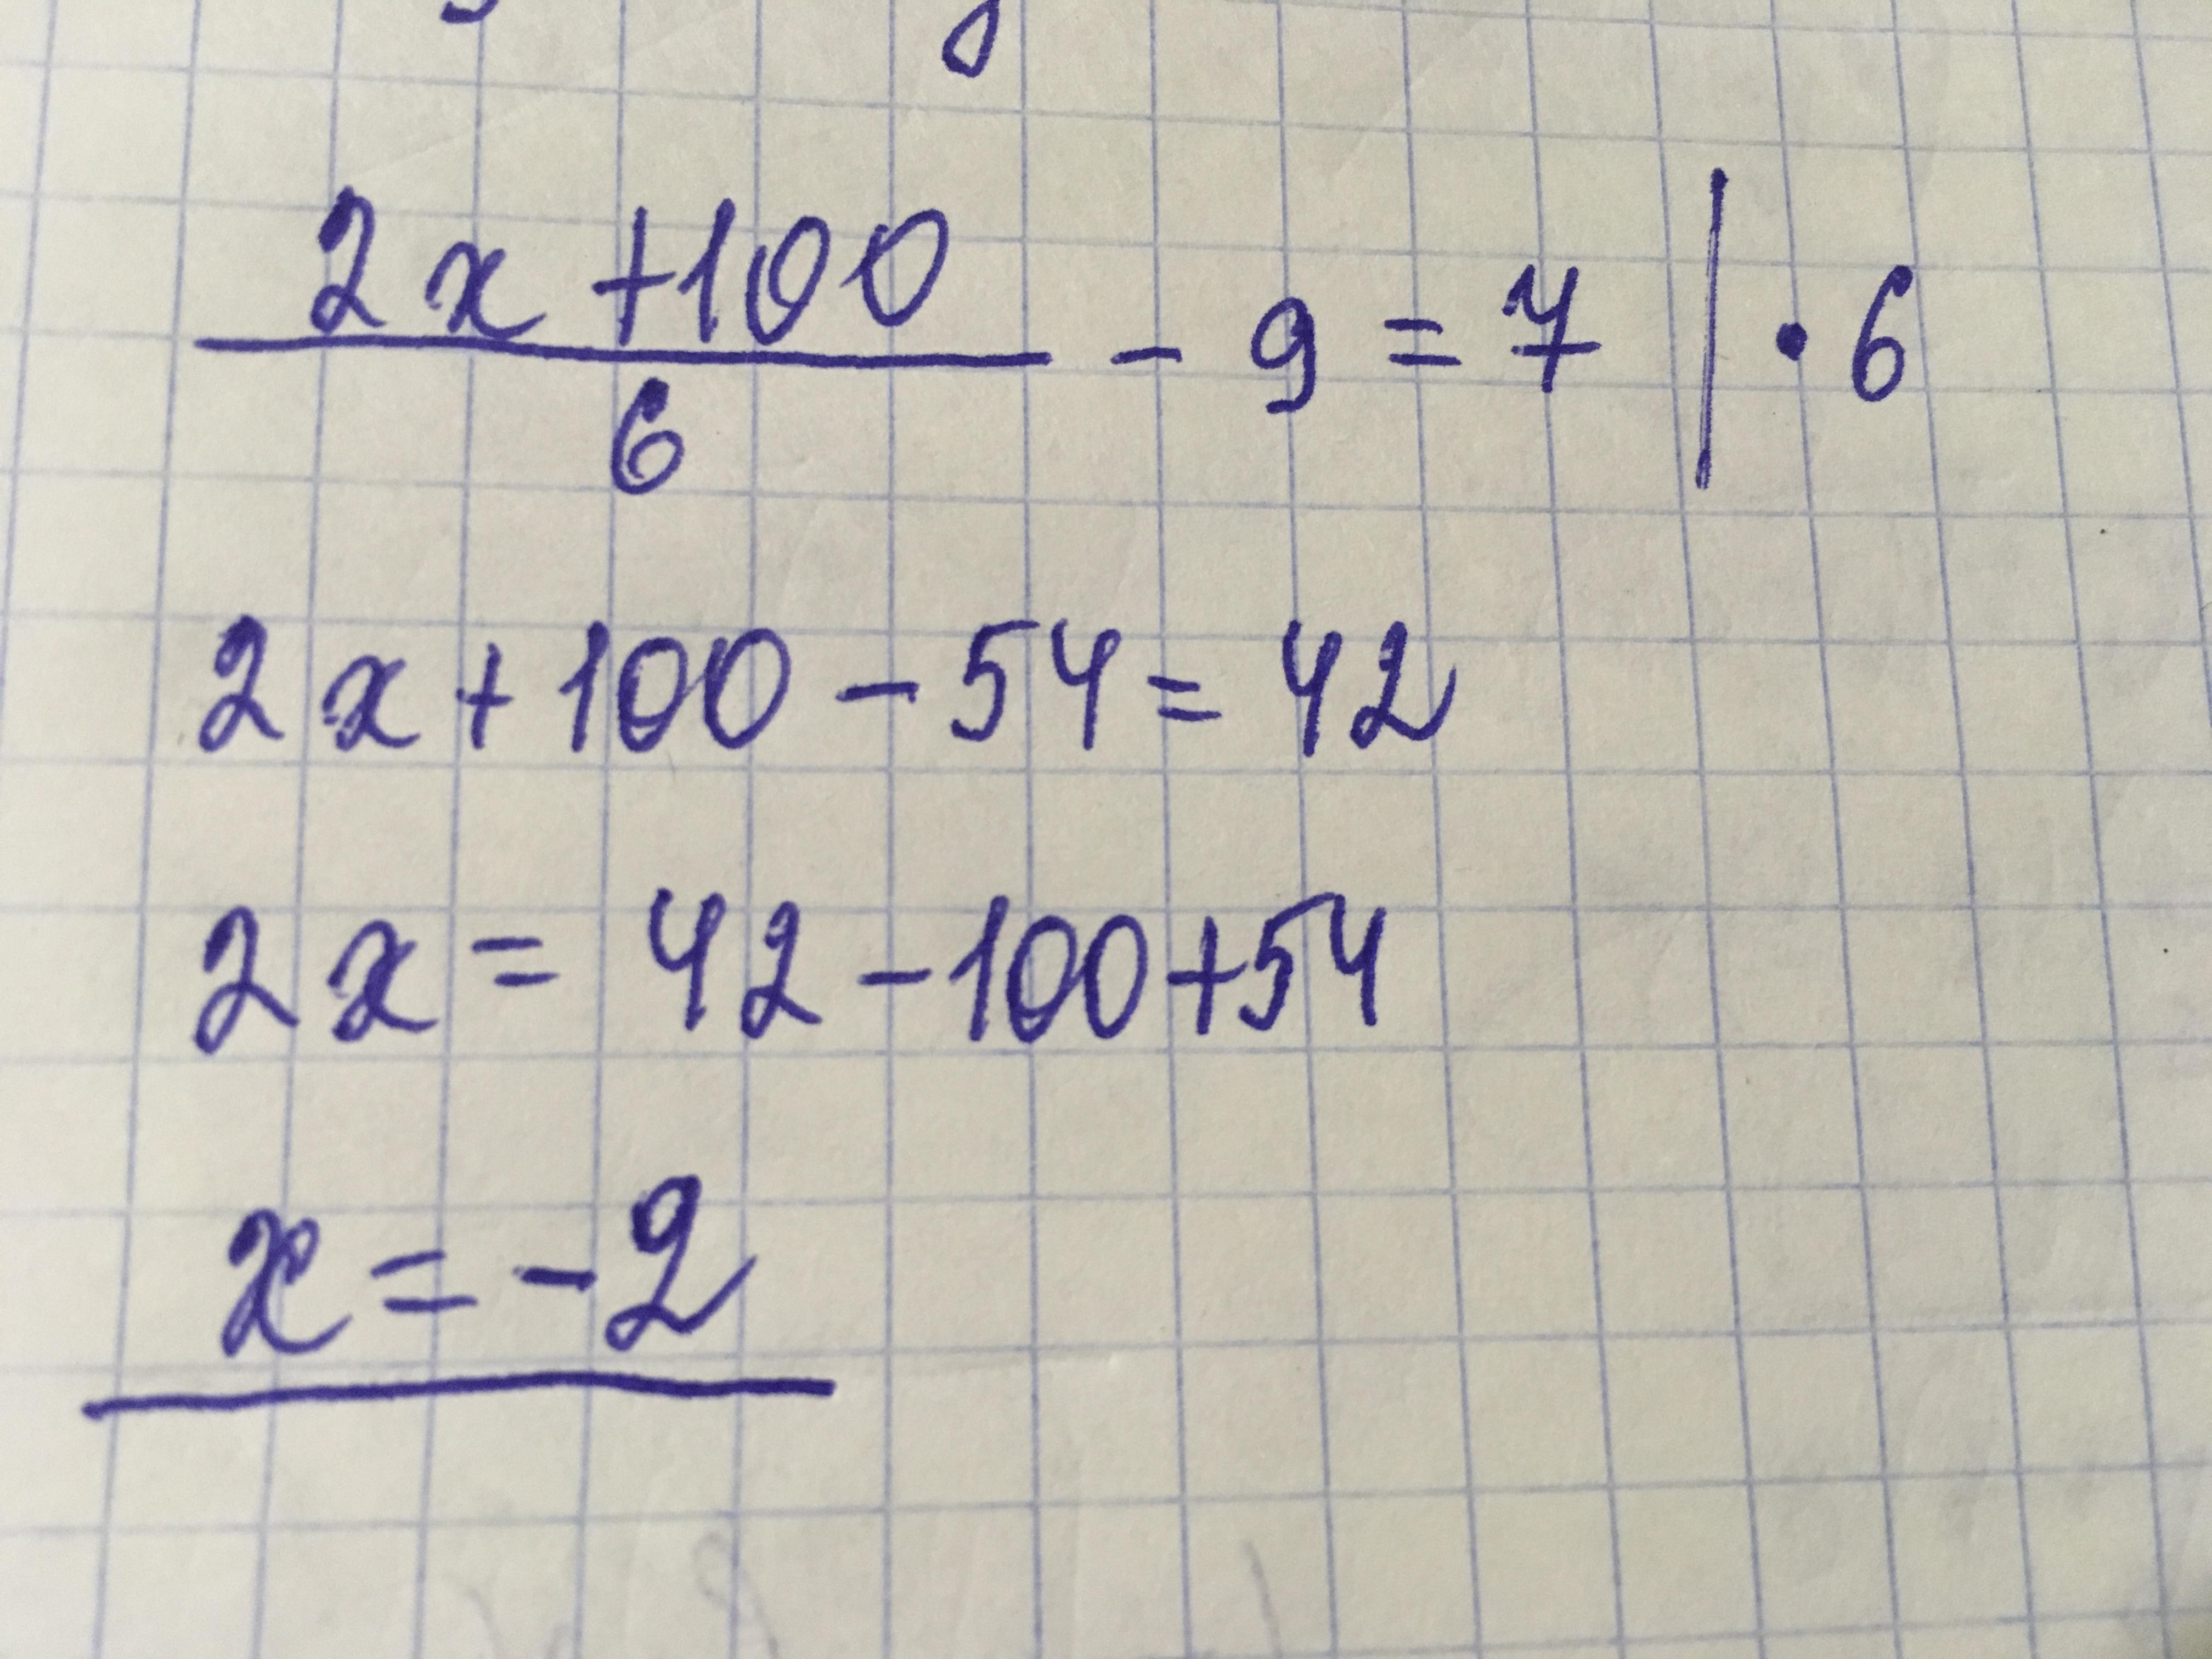 (2x+100)/6 - 9 = 7 | · 6
2x + 100 - 54 = 42
2x = 42 - 100 + 54
x = -2